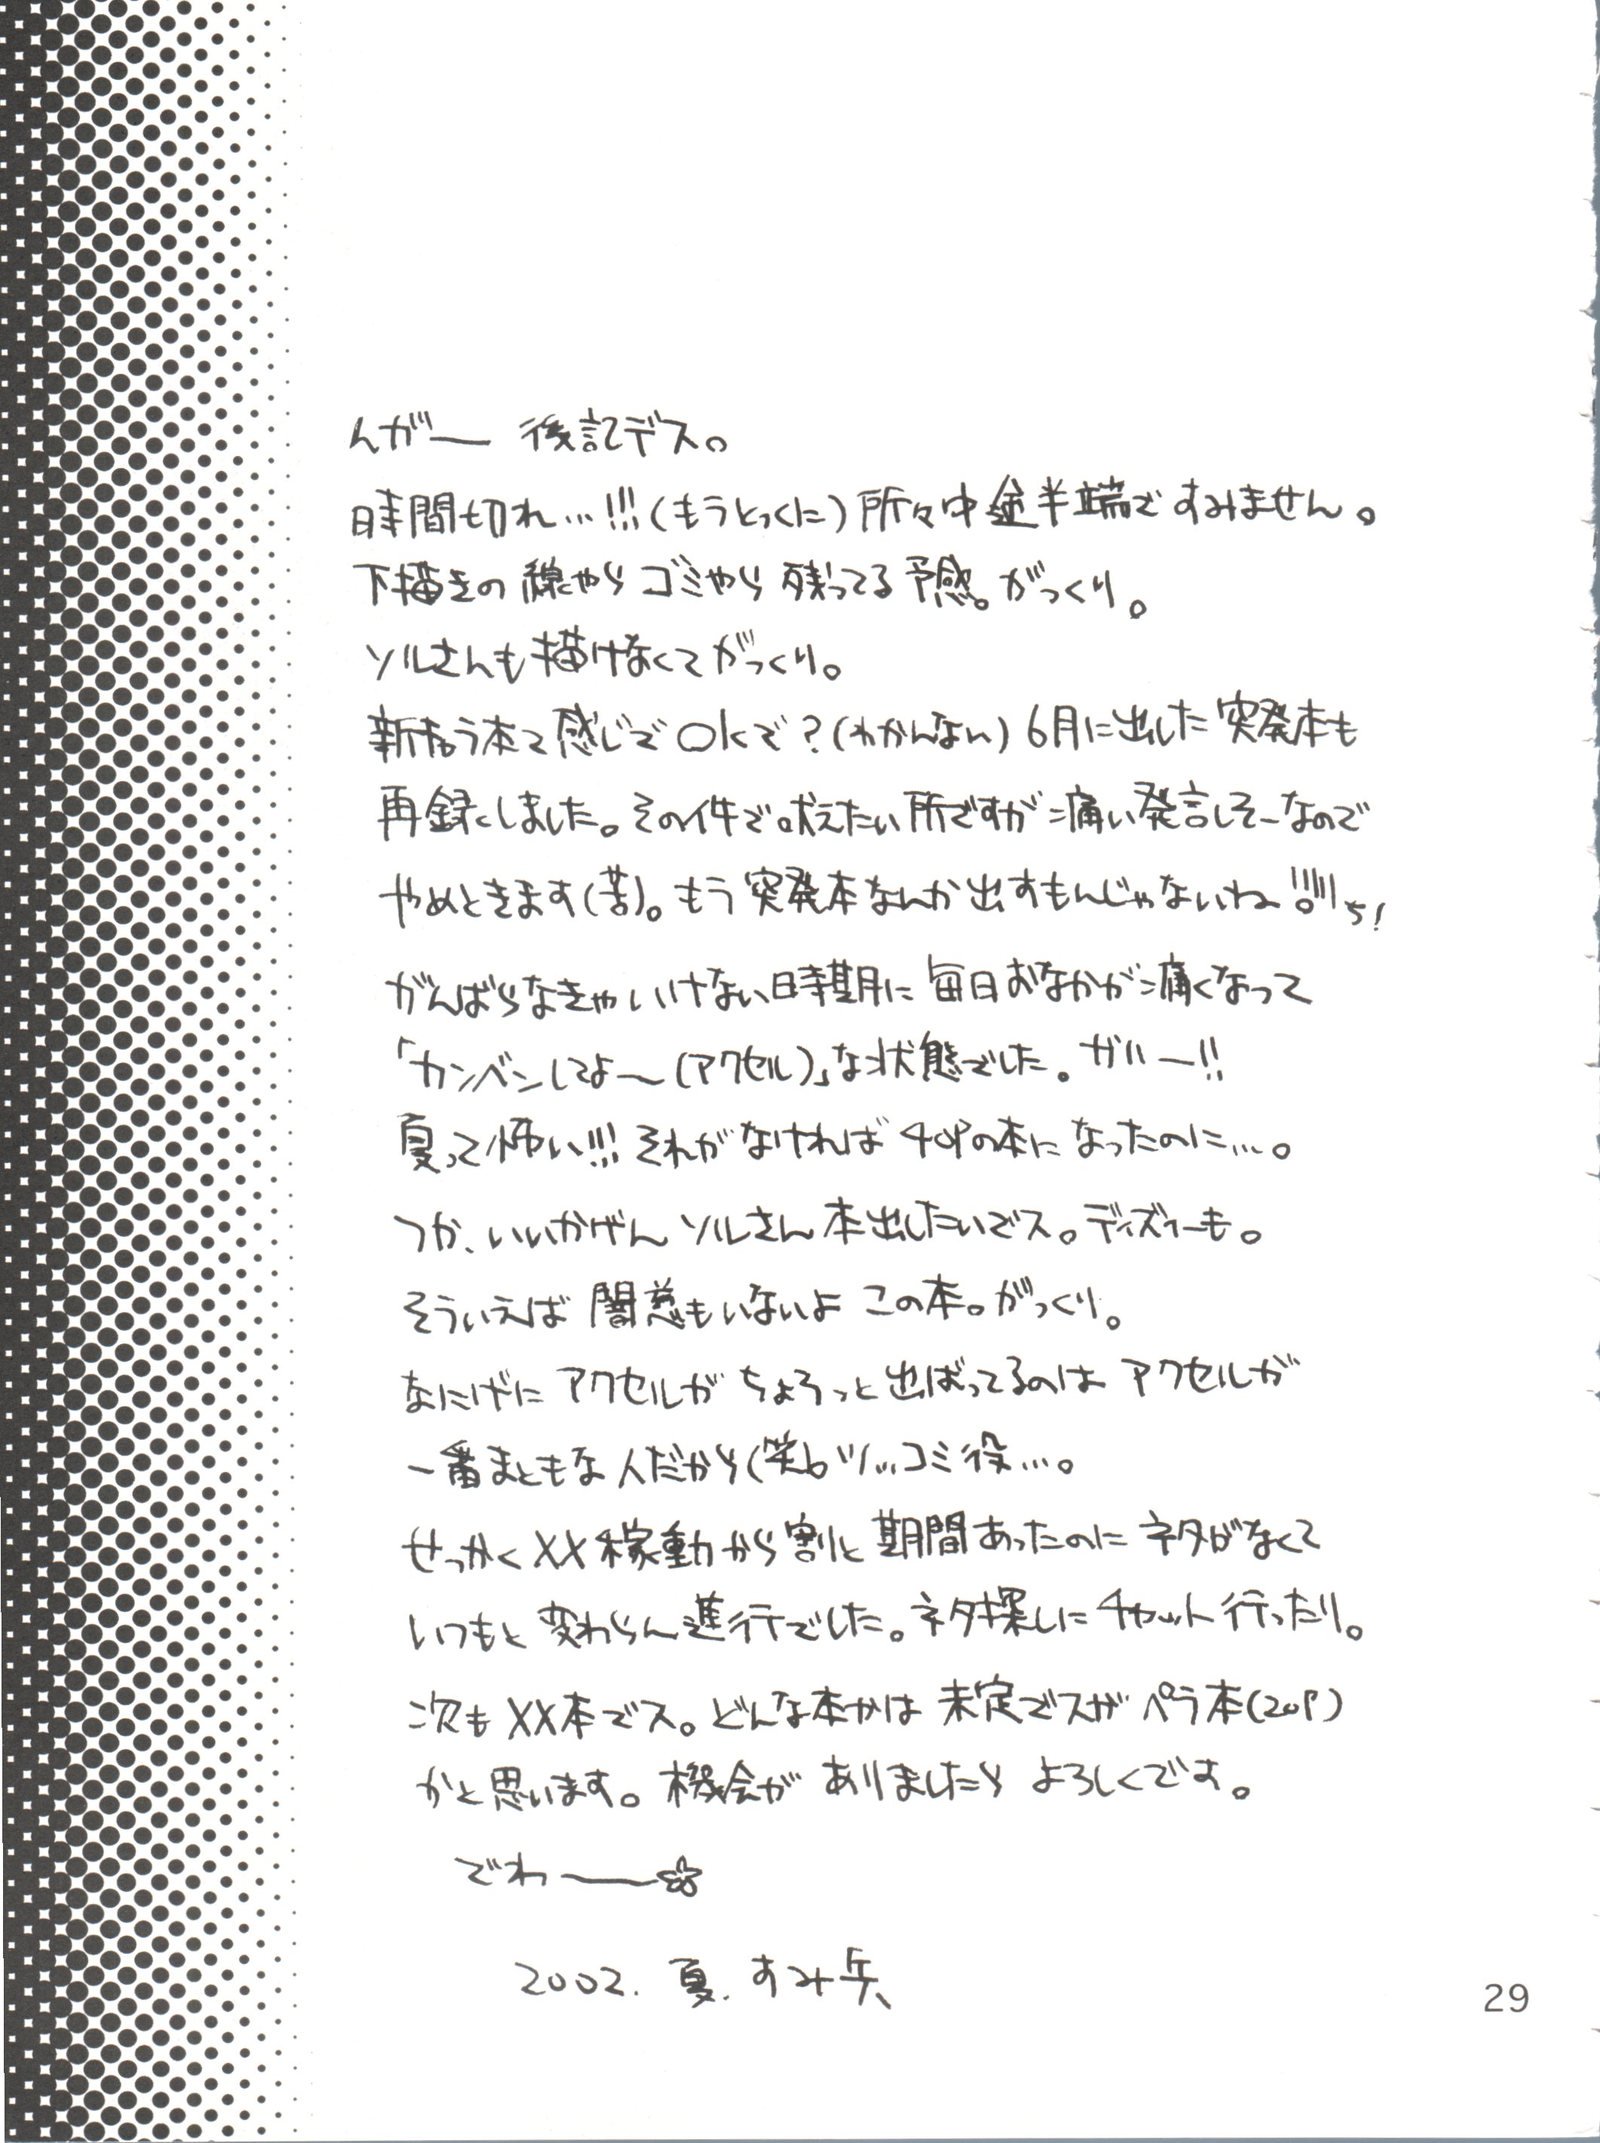 んがー 後記デス。
時間切れ…!!!(もうとっくに)所々中途半端ですみません。
下描きの線やらゴミやら残ってる予感。がっくり。
ソルさんも描けなくてがっくり。
新カラ本て感じでOKで?(わかんない)6月に出した突発本も
再録しました。その件で吠えたい所ですが痛い発言しそーなので
やめときます(苦)。もう突発本なんか出すもんじゃないね!!!!!ち!
がんばらなきゃいけない時期に毎日おなかが痛くなって
「カンベンしてよ〜(アクセル)」な状態でした。ガハー!!
夏って怖い!!!それがなければ40Pの本になったのに…。
つか、いいかげんソルさん本出したいでス。ディズィーも。
そういえば闇慈もいないよこの本。がっくり。
なにげにアクセルがちょろっと出ばってるのはアクセルが
一番まともな人だから(笑)。ツッコミ役…。
せっかくXX稼動から割と期間あったのにネタがなくて
いつもと変わらん進行でした。ネタ探しにチャット行ったり。
次もXX本でス。どんな本かは未定でスがペラ本(20P)
かと思います。機会がありましたらよろしくです。
でわー☆
2002.夏.すみ兵
29